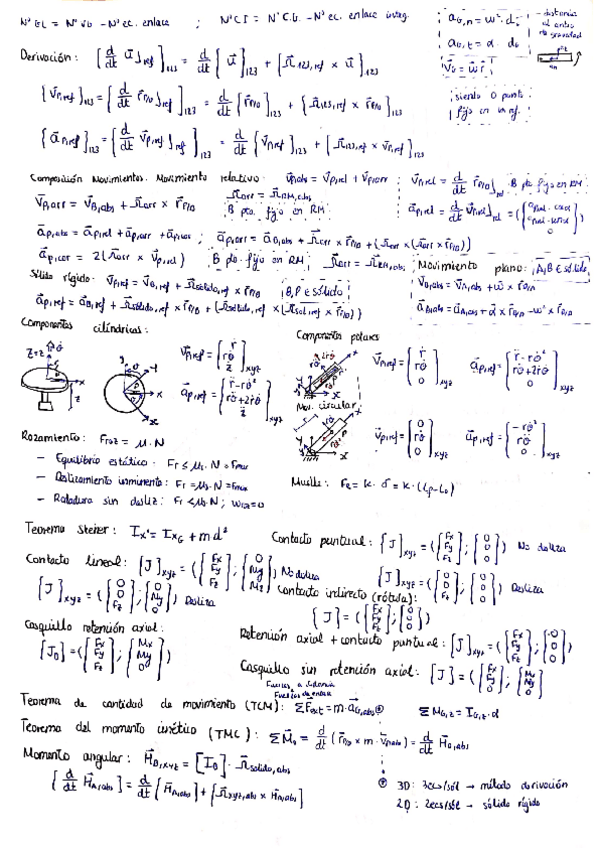 Nº GL = Nº CG - Nº ec. enlace ; Nº CI = Nº C.G. - Nº ec. enlace integ.
a_{G,n} = ω²·d_0 - distancia al centro de gravedad
a_{G,t} = α · d_0
Derivación: [d/dt ū]_{ref}]_{123} = d/dt {ū}_{123} + [Ω̄_{123,ref} × ū]_{123}
{v̄_{P,ref}}_{123} = {d/dt r̄_{P/O}]_{ref}}_{123} = d/dt {r̄_{P/O}}_{123} + {Ω̄_{123,ref} × r̄_{P/O}}_{123}
siendo O punto fijo en la ref.
{ā_{P,ref}}_{123} = {d/dt v̄_{P,ref}]_{ref}}_{123} = d/dt {v̄_{P,ref}}_{123} + {Ω̄_{123,ref} × v̄_{P,ref}}_{123}
Composición Movimientos. Movimiento relativo. v̄_{P,abs} = v̄_{P,rel} + v̄_{P,arr} ; v̄_{P,rel} = d/dt r̄_{P/B}]_{rel} B pto fijo en RM
v̄_{P,arr} = v̄_{B,abs} + Ω̄_{arr} × r̄_{P/B} Ω̄_{arr} = Ω̄_{RM,abs} B pto. fijo en RM ā_{P,rel} = d/dt v̄_{P,rel}]_{rel}
ā_{P,abs} = ā_{P,rel} + ā_{P,arr} + ā_{P,cor} ; ā_{P,arr} = ā_{B,abs} + Ω̄_{arr} × r̄_{P/B} + (Ω̄_{arr} × (Ω̄_{arr} × r̄_{P/B}))
ā_{P,cor} = 2(Ω̄_{arr} × v̄_{P,rel}) B pto. fijo en RM Ω̄_{arr} = Ω̄_{RM,abs} Movimiento plano: A,B ∈ sólido
Sólido rígido. v̄_{P,ref} = v̄_{B,ref} + Ω̄_{sólido,ref} × r̄_{P/B} B,P ∈ sólido v̄_{B,abs} = v̄_{A,abs} + ω̄ × r̄_{B/A}
ā_{P,ref} = ā_{B,ref} + Ω̄_{sólido,ref} × r̄_{P/B} + (Ω̄_{sólido,ref} × (Ω̄_{sol,ref} × r̄_{P/B})) ā_{B,abs} = ā_{A,abs} + ᾱ × r̄_{B/A} - ω² × r̄_{B/A}
Componentes cilíndricas: Componentes polares
Mov. circular
Rozamiento: F_{roz} = μ · N
- Equilibrio estático: F_r ≤ μ_s · N = F_{max}
- Deslizamiento inminente: F_r = μ_s · N = F_{max} Muelle: F_e = K · δ = K · (l_p - l_0)
- Rodadura sin desliz: F_r < μ_s · N ;
Teorema Steiner: I_{x'} = I_{xG} + m d² Contacto puntual: {J}_{xyz} = ({F_x F_y F_z} ; {0 0 0}) No desliza
Contacto lineal: {J}_{xyz} = ({F_x F_y F_z} ; {0 N_y N_z}) No desliza {J}_{xyz} = ({0 0 F_z} ; {0 0 0}) Desliza
{J}_{xyz} = ({0 0 F_z} ; {0 N_y 0}) Desliza Contacto indirecto (rótula): {J} = ({F_x F_y F_z} ; {0 0 0})
Casquillo retención axial: {J_O} = ({F_x F_y F_z} ; {M_x M_y 0}) Retención axial + contacto puntual: {J}_{xyz} = ({F_x F_y F_z} ; {0 0 0})
Casquillo sin retención axial: {J} = ({F_x F_y 0} ; {M_x M_y 0})
Fuerzas a distancia
Fuerzas de enlace
Teorema de cantidad de movimiento (TCM): ΣF̄_{ext} = m·ā_{G,abs} ⊛ ΣM_{G,z} = I_{G,z}·α
Teorema del momento cinético (TMC): ΣM̄_0 = d/dt (r̄_{P/O} × m · v̄_{P,abs}) = d/dt H̄_{0,abs}
Momento angular: H̄_{0,xyz} = [I_0] · Ω̄_{sólido,abs}
{d/dt H̄_{A,abs}} = d/dt {H̄_{A,abs}} + {Ω̄_{xyz,abs} × H̄_{A,abs}} ⊛ 3D: 3ecs/sól → método derivación
2D: 2ecs/sól → sólido rígido